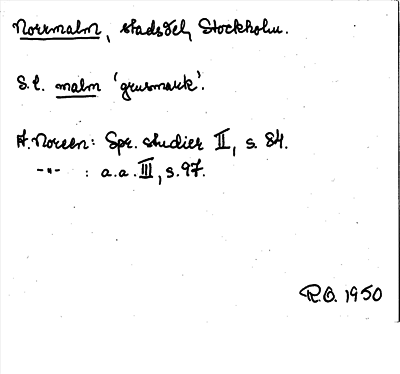 Norrmalm, stadsdel, Stockholm.
S.l. malm 'grusmark'.
A. Noreen: Spr. studier II, s. 84.
-"- : a.a. III, s. 97.
R.O. 1950